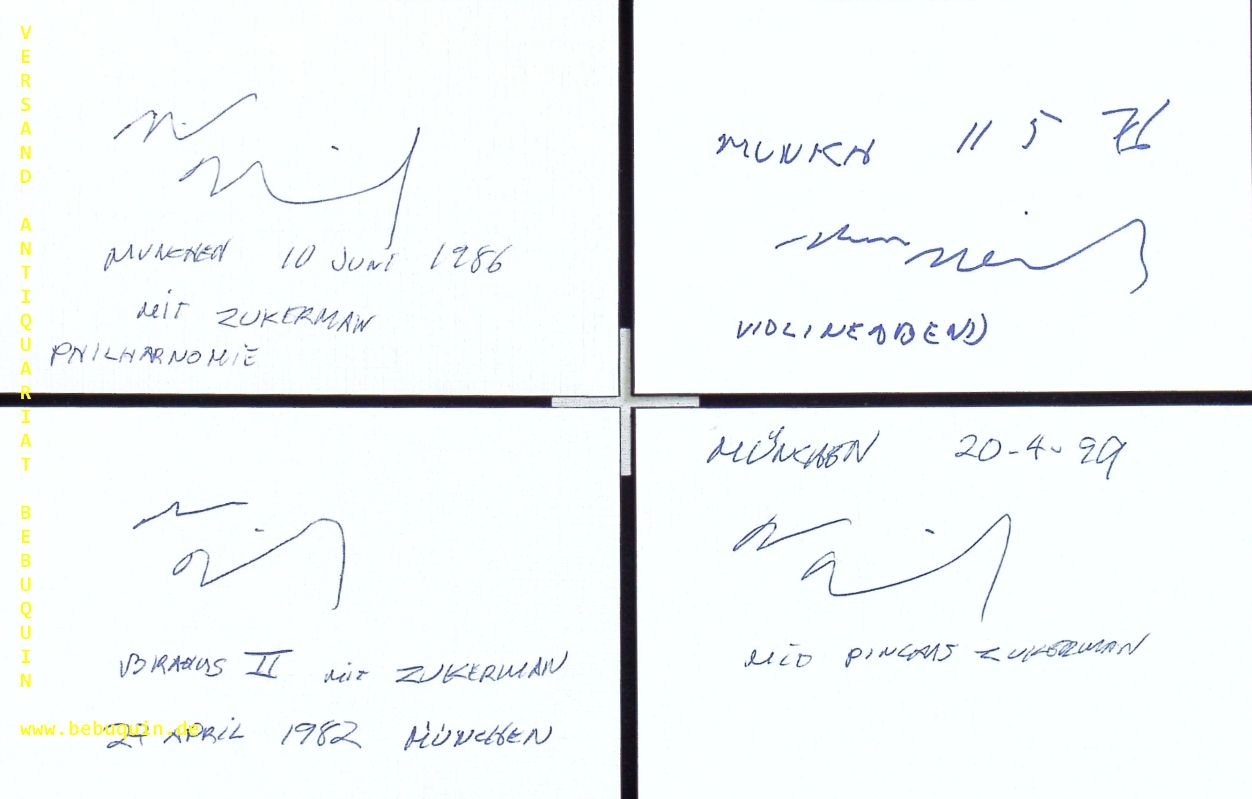 VERSAND ANTIQUARIAT BEBUQUIN
www.bebuquin.de
MUNCHEN 10 JUNI 1986
MIT ZUKERMAN
PHILHARNOMIE
MUNKN 11 5 76
VIOLINEABEND
BRAHMS II MIT ZUKERMAN
27 APRIL 1982 MÜNCHEN
MÜNCHEN 20-4-99
PINCHAS ZUKERMAN